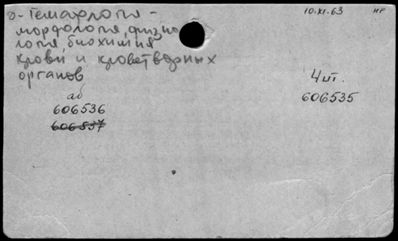 д-Гематология - 10.XI.63 НР
морфология, физио
логия, биохимия
крови и кроветворных
органов
Чит.
аб 606535
606536
606537